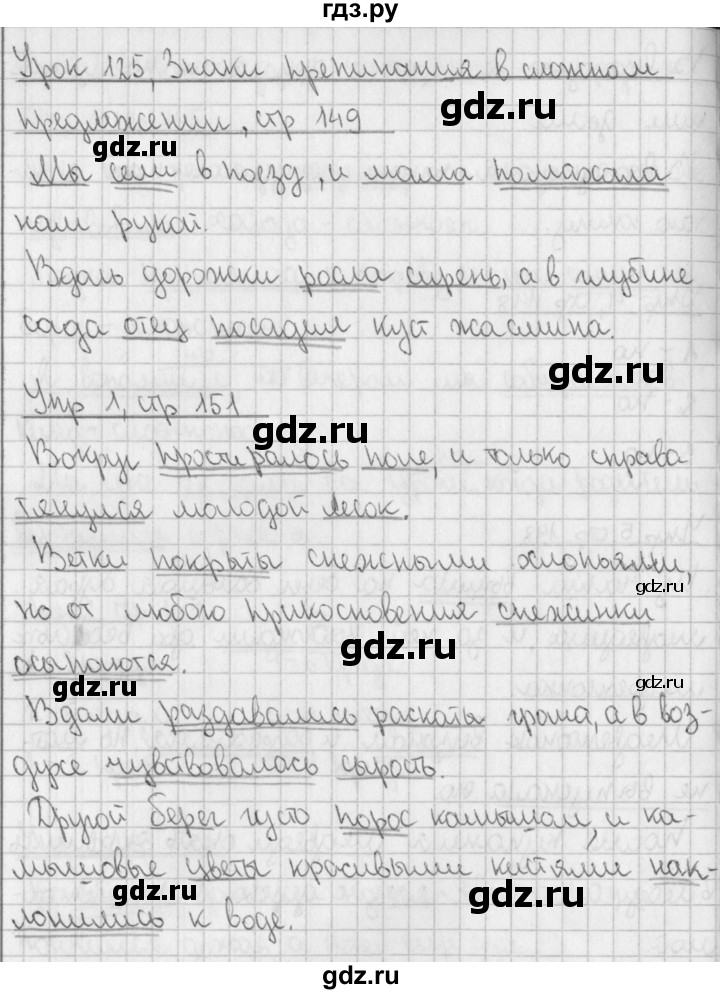 гдз.ру
Урок 125, Знаки препинания в сложном
предложении, стр 149
Мы сели в поезд, и мама помахала
нам рукой.
Вдоль дорожки росла сирень, а в глубине
сада отец посадил куст жасмина.
Упр 1, стр 151
Вокруг простиралось поле, и только справа
тянулся молодой лесок.
Ветки покрыты снежными хлопьями,
но от любого прикосновения снежинки
осыпаются.
Вдали раздавались раскаты грома, а в воз-
духе чувствовалась сырость.
Другой берег густо порос камышом, и ка-
мышовые цветы красивыми кистями нак-
лонились к воде.
gdz.ru
gdz.ru
gdz.ru
gdz.ru
gdz.ru
gdz.ru
gdz.ru
gdz.ru
gdz.ru
gdz.ru
gdz.ru
gdz.ru